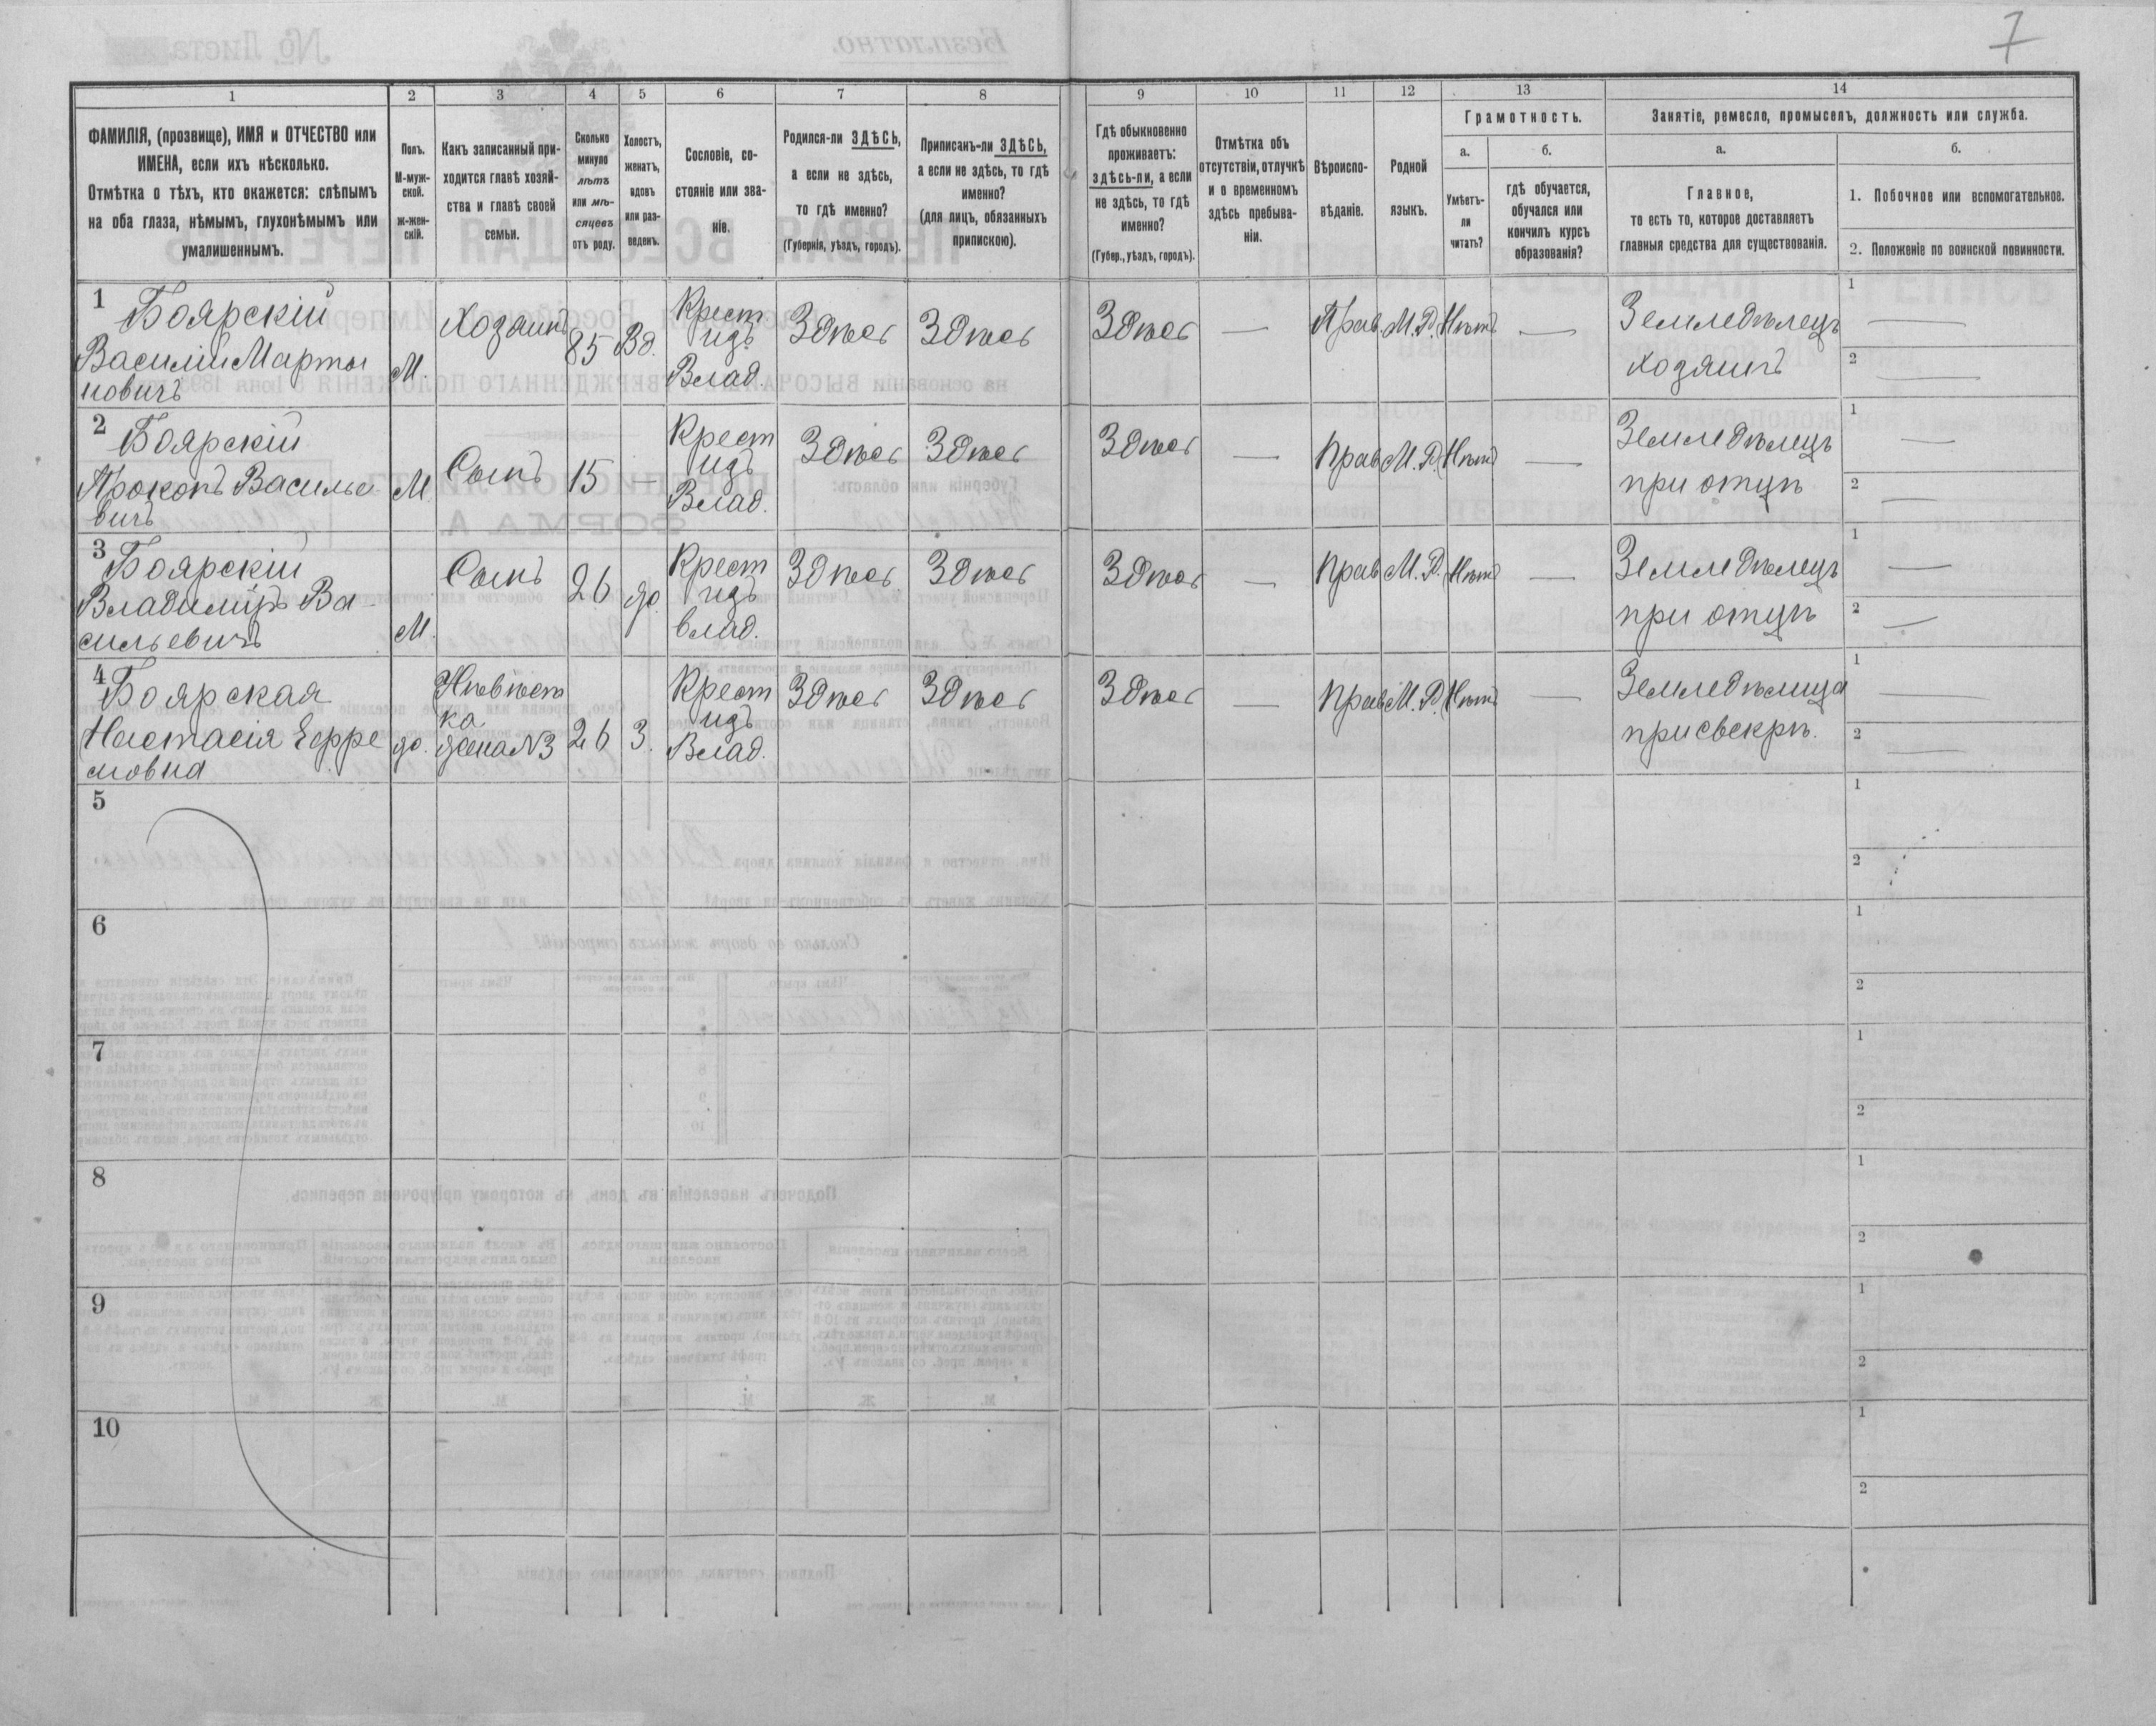 7
1 2 3 4 5 6 7 8 9 10 11 12 13 14
ФАМИЛІЯ, (прозвище), ИМЯ и ОТЧЕСТВО или
ИМЕНА, если ихъ нѣсколько.
Отмѣтка о тѣхъ, кто окажется: слѣпымъ
на оба глаза, нѣмымъ, глухонѣмымъ или
умалишеннымъ.
Полъ.
М-муж-
ской.
ж-жен-
скій.
Какъ записанный при-
ходится главѣ хозяй-
ства и главѣ своей
семьи.
Сколько
минуло
лѣтъ
или мѣ-
сяцевъ
отъ роду.
Холостъ,
женатъ,
вдовъ
или раз-
веденъ.
Сословіе, со-
стояніе или зва-
ніе.
Родился-ли ЗДѢСЬ,
а если не здѣсь,
то гдѣ именно?
(Губернія, уѣздъ, городъ).
Приписанъ-ли ЗДѢСЬ,
а если не здѣсь, то гдѣ
именно?
(для лицъ, обязанныхъ
припискою).
Гдѣ обыкновенно
проживаетъ:
здѣсь-ли, а если
не здѣсь, то гдѣ
именно?
(Губер., уѣздъ, городъ).
Отмѣтка объ
отсутствіи, отлучкѣ
и о временномъ
здѣсь пребыва-
ніи.
Вѣроиспо-
вѣданіе.
Родной
языкъ.
Грамотность.
а.
Умѣетъ-
ли
читать?
б.
гдѣ обучается,
обучался или
кончилъ курсъ
образованія?
Занятіе, ремесло, промыселъ, должность или служба.
а.
Главное,
то есть то, которое доставляетъ
главныя средства для существованія.
б.
1. Побочное или вспомогательное.
2. Положеніе по воинской повинности.
1 Боярскій
Василій Марты
новичъ
М.
Хозяинъ
85
Вд.
Крест
изъ
Влад.
Здѣсь
Здѣсь
Здѣсь
—
Прав.
М.Р.
Нѣтъ
—
Земледѣлецъ
хозяинъ
1 —
2 —
2 Боярскій
Прокопъ Василье
вичъ
М
Сынъ
15
—
Крест
изъ
Влад.
Здѣсь
Здѣсь
Здѣсь
—
Прав
М.Р.
Нѣтъ
—
Земледѣлецъ
при отцѣ
1 —
2 —
3 Боярскій
Владиміръ Ва
сильевичъ
М.
Сынъ
26
Крест
изъ
влад.
Здѣсь
Здѣсь
Здѣсь
—
Прав
М.Р.
Нѣтъ
—
Земледѣлецъ
при отцѣ
1 —
2 —
4 Боярская
Настасія Ефре
мовна
ж.
Нѣвѣст
ка
жена №3
26
З.
Крест
изъ
Влад.
Здѣсь
Здѣсь
Здѣсь
—
Прав
М.Р.
Нѣтъ
—
Земледѣлица
при свекрѣ.
1 —
2 —
5
1
2
6
1
2
7
1
2
8
1
2
9
1
2
10
1
2